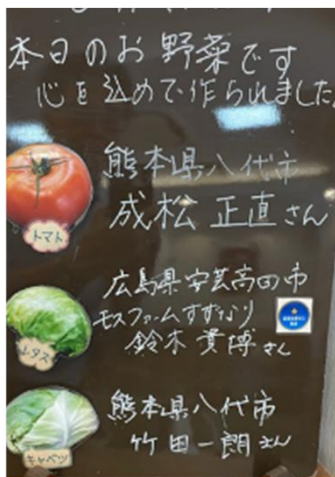 本日のお野菜です
心を込めで作られました
熊本県八代市
成松 正直さん
トマト
広島県安芸高田市
モスファームすずなり
鈴木 貴博さん
レタス
熊本県八代市
竹田一朗さん
キャベツ